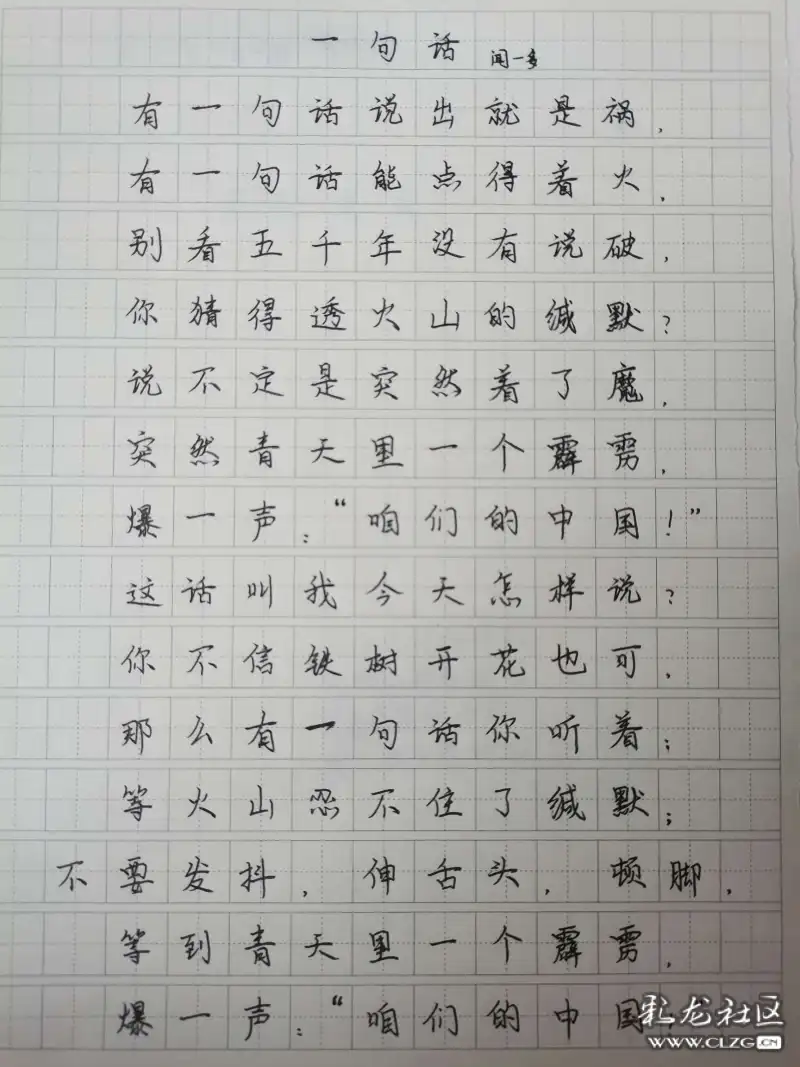 一句话 闻一多
有一句话说出就是祸，
有一句话能点得着火，
别看五千年没有说破，
你猜得透火山的缄默？
说不定是突然着了魔，
突然青天里一个霹雳，
爆一声：“咱们的中国！”
这话叫我今天怎样说？
你不信铁树开花也可，
那么有一句话你听着；
等火山忍不住了缄默；
不要发抖，伸舌头，顿脚，
等到青天里一个霹雳，
爆一声：“咱们的中国！
彩龙社区
WWW.CLZG.CN